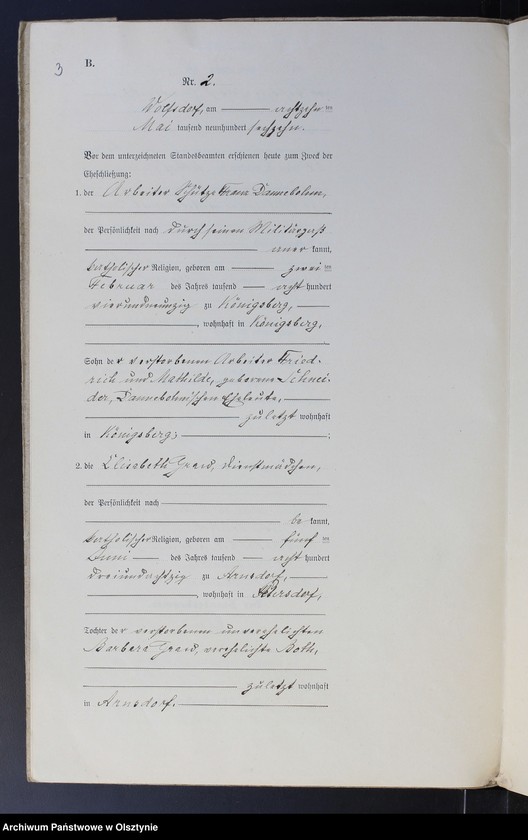 3
B.
Nr. 2.
Wolfsdorf, am achtzehn ten
Mai tausend neunhundert sechzehn.
Vor dem unterzeichneten Standesbeamten erschienen heute zum Zweck der
Eheschließung:
1. der Arbeiter Schütze Franz Dannebohm,
der Persönlichkeit nach durch seinen Militärpaß
aner kannt,
katholischer Religion, geboren am zwei ten
Februar des Jahres tausend acht hundert
vierundneunzig zu Königsberg,
, wohnhaft in Königsberg,
Sohn der verstorbenen Arbeiter Fried-
rich und Mathilde, geborene Schnei-
der, Dannebohm'schen Eheleute,
zuletzt wohnhaft
in Königsberg;
2. die Elisabeth Graw, Dienstmädchen,
der Persönlichkeit nach
be kannt,
katholischer Religion, geboren am fünf ten
Juni des Jahres tausend acht hundert
dreiundachtzig zu Arnsdorf,
, wohnhaft in Petersdorf,
Tochter der verstorbenen unverehelichten
Barbara Graw, verehelichte Both,
zuletzt wohnhaft
in Arnsdorf.
Archiwum Państwowe w Olsztynie